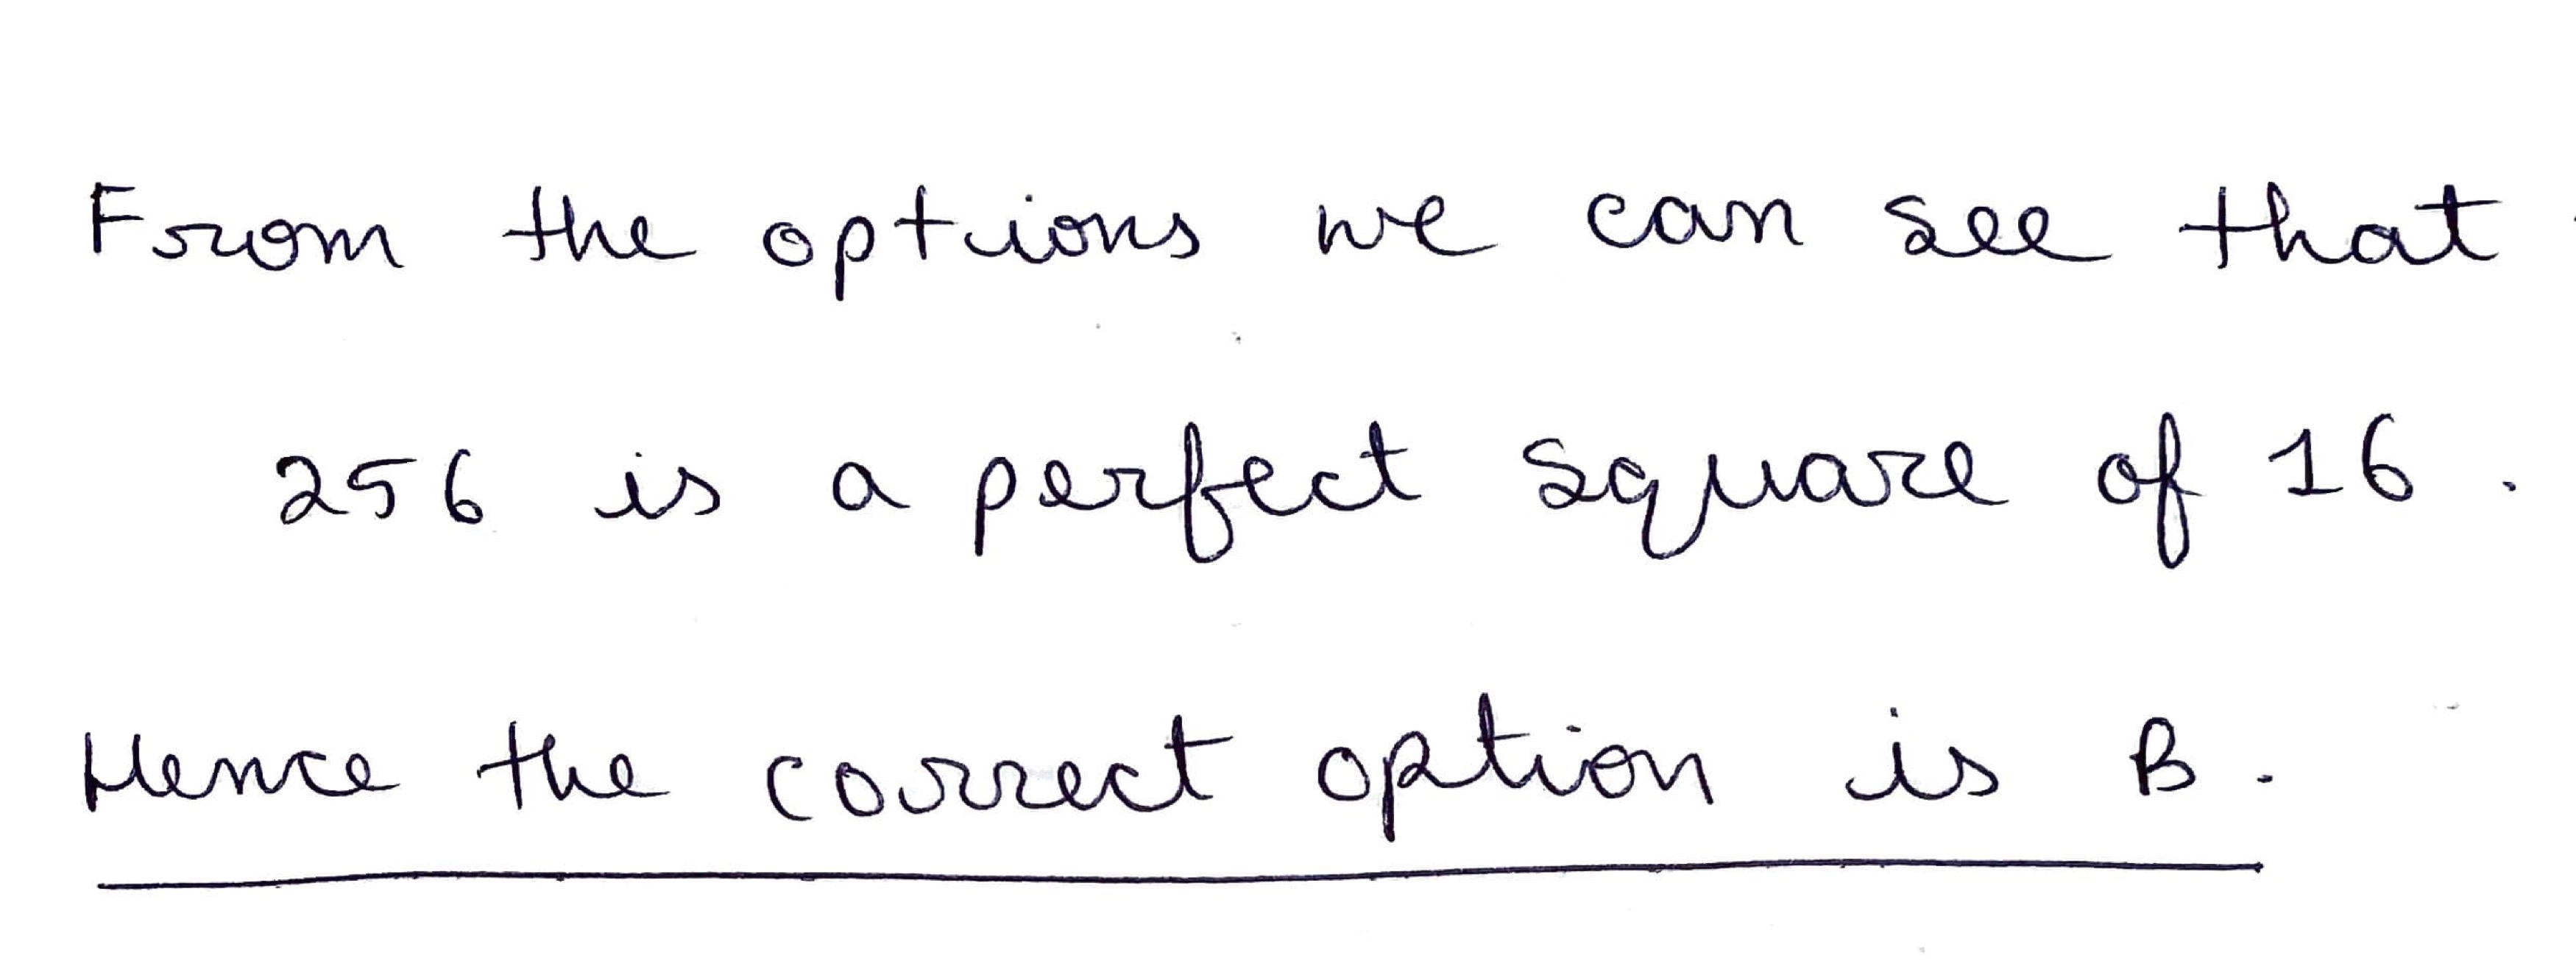 From the options we can see that
256 is a perfect square of 16.
Hence the correct option is B.